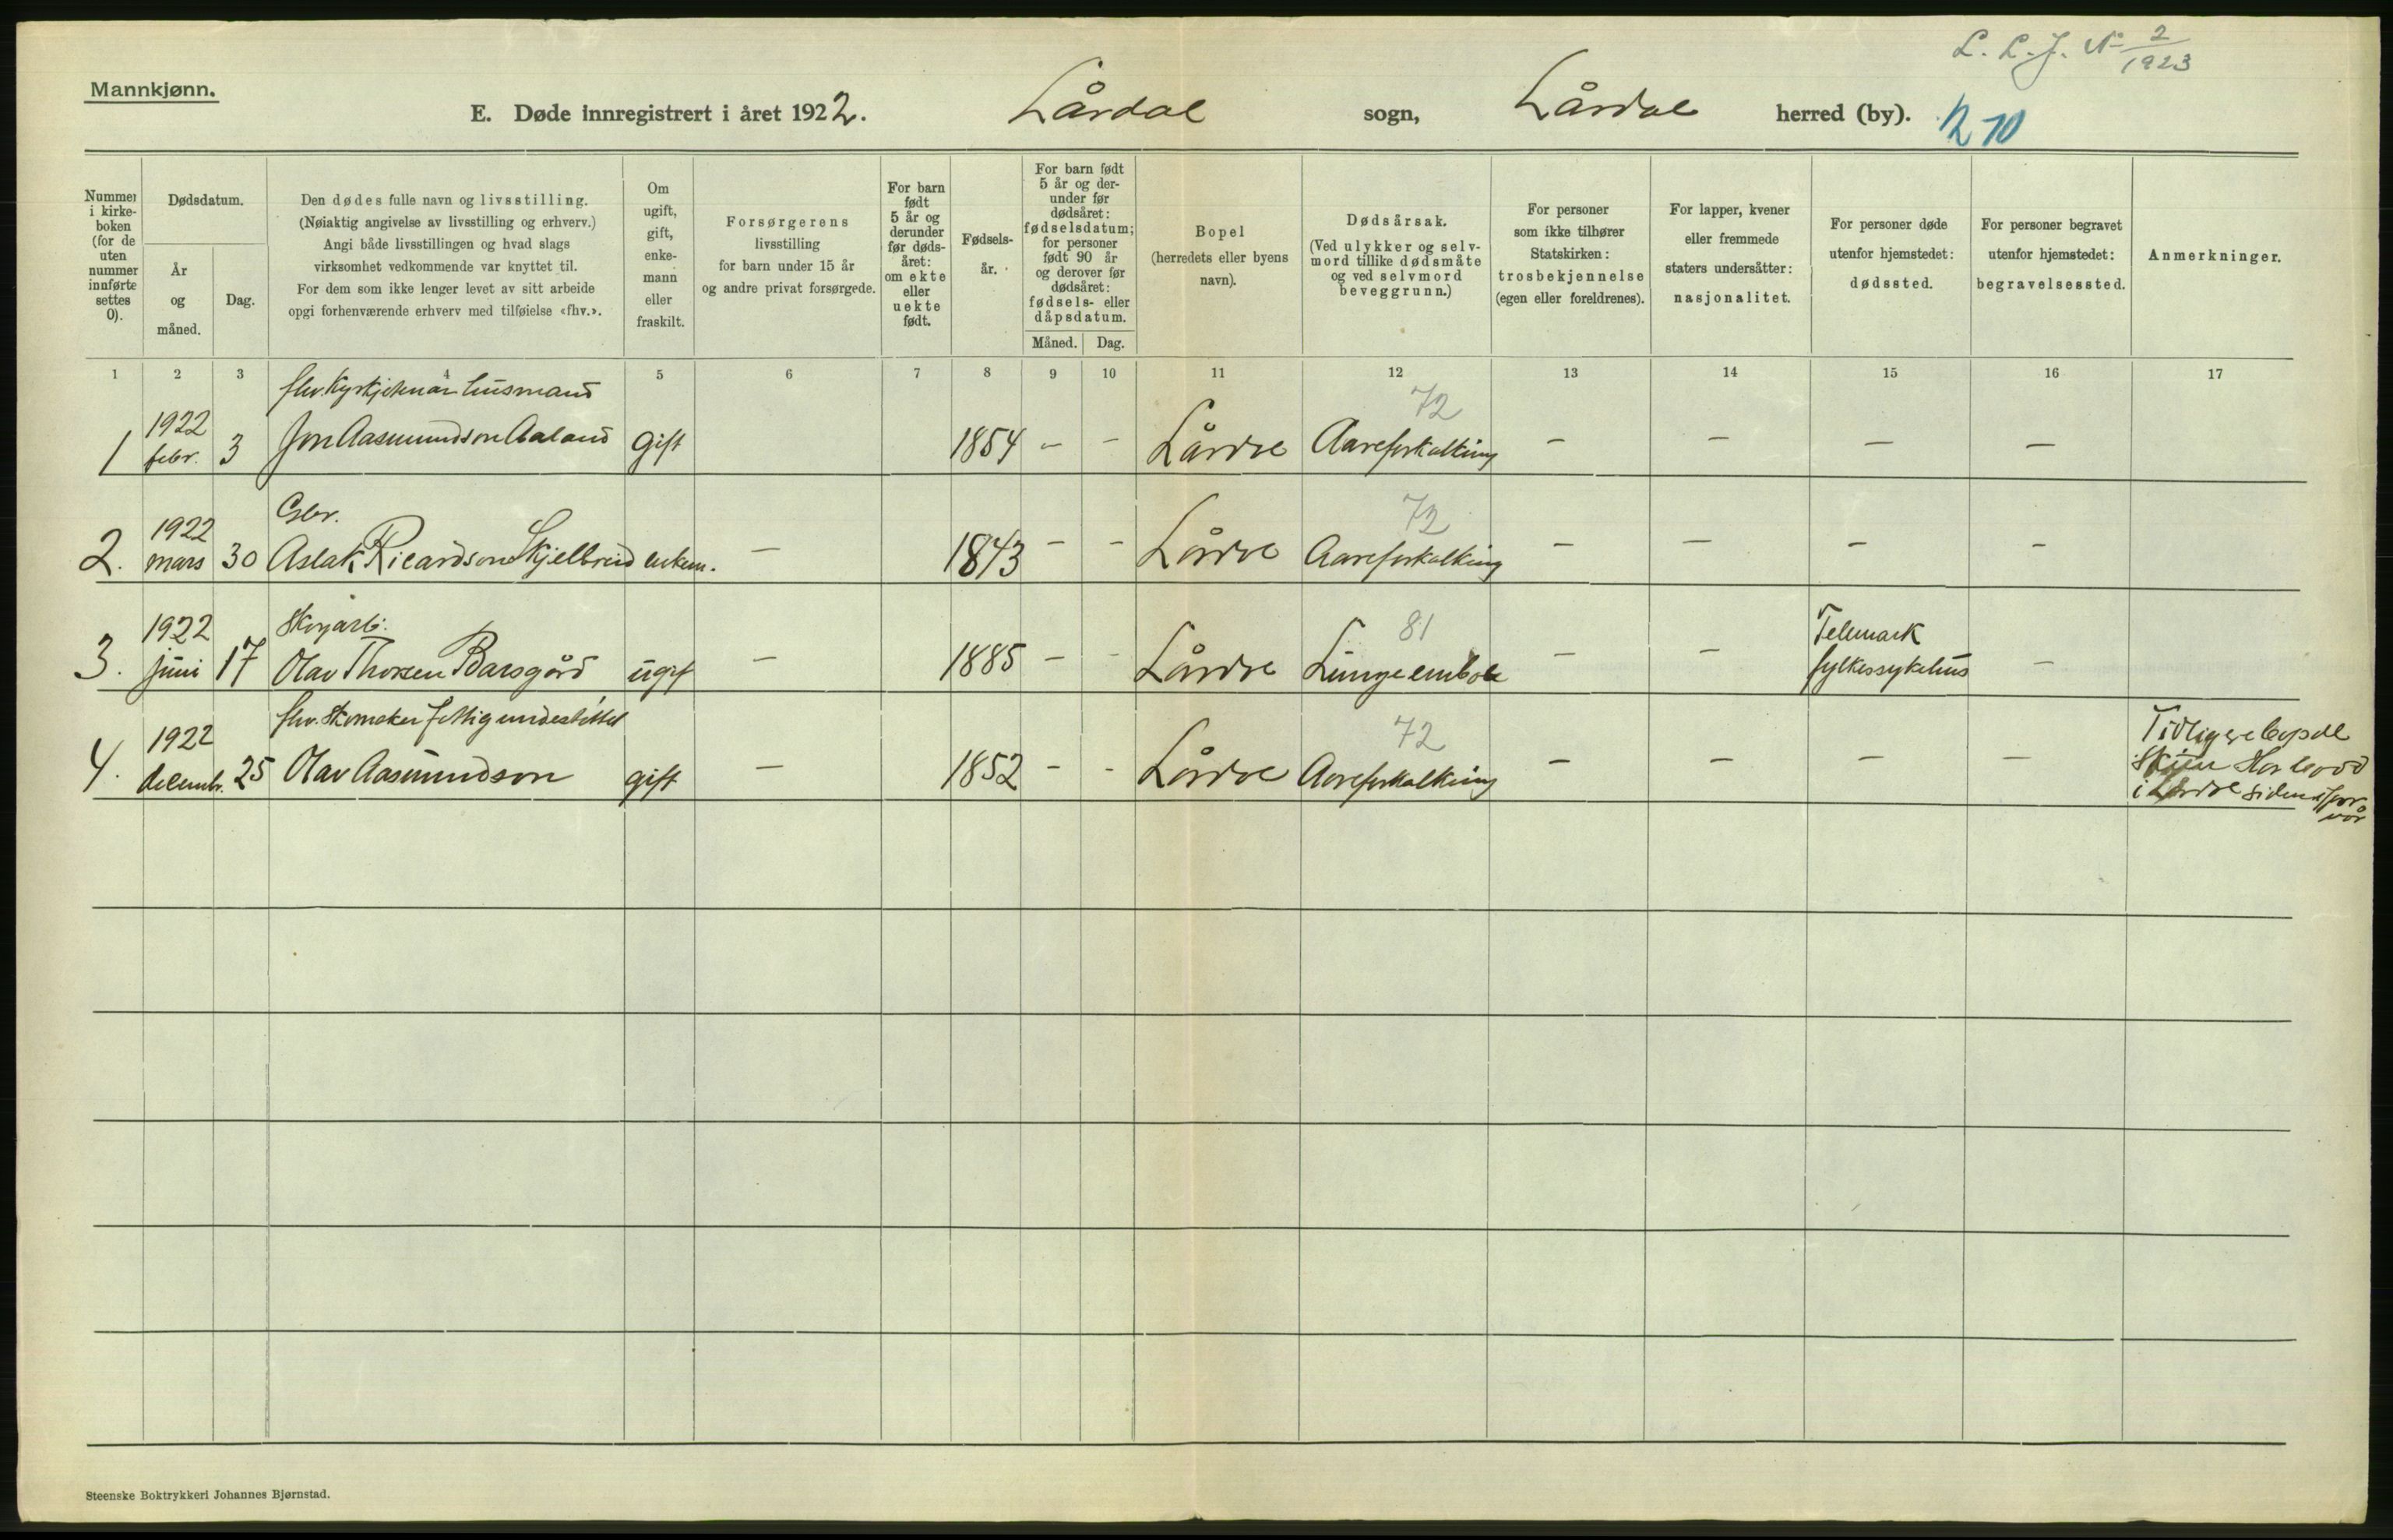 L. L. J. № 2/1923
Mannkjønn.
E. Døde innregistrert i året 1922. Lårdal sogn, Lårdal herred (by). 210
Nummer i kirke-boken (for de uten nummer innførte settes 0).
Dødsdatum.
År og måned.
Dag.
Den dødes fulle navn og livsstilling.
(Nøiaktig angivelse av livsstilling og erhverv.)
Angi både livsstillingen og hvad slags
virksomhet vedkommende var knyttet til.
For dem som ikke lenger levet av sitt arbeide
opgi forhenværende erhverv med tilføielse «fhv.».
Om ugift, gift, enke-mann eller fraskilt.
Forsørgerens
livsstilling
for barn under 15 år
og andre privat forsørgede.
For barn født 5 år og derunder før døds-året: om ekte eller uekte født.
Fødsels-år.
For barn født 5 år og der-under før dødsåret: fødselsdatum; for personer født 90 år og derover før dødsåret: fødsels- eller dåpsdatum.
Måned. Dag.
Bopel
(herredets eller byens
navn).
Dødsårsak.
(Ved ulykker og selv-
mord tillike dødsmåte
og ved selvmord
beveggrunn.)
For personer
som ikke tilhører
Statskirken:
trosbekjennelse
(egen eller foreldrenes).
For lapper, kvener
eller fremmede
staters undersåtter:
nasjonalitet.
For personer døde
utenfor hjemstedet:
dødssted.
For personer begravet
utenfor hjemstedet:
begravelsessted.
Anmerkninger.
1 2 3 4 5 6 7 8 9 10 11 12 13 14 15 16 17
fhv. Kyrkjetenar husmand 72
1 1922 febr. 3 Jon Aasmundson Aaland gift 1854 - - Lårdal Aareforkalking - - - -
Gbr. 72
2. 1922 mars 30 Aslak Ricardson Skjelbreid enkem. - 1843 - - Lårdal Aareforkalking - - - -
Skogarb. 81
3. 1922 juni 17 Olav Thorsen Barsgård ugift - 1885 - - Lårdal Lungeemboli - - Telemark fylkessykehus -
fhv. Skomaker fattigunderstøttet 72
4. 1922 decembr. 25 Olav Aasmundson gift - 1852 - - Lårdal Aareforkalking - - - - Tidligere bopel
Skien Har bodd
i Lårdal siden ifjor
vår
Steenske Boktrykkeri Johannes Bjørnstad.